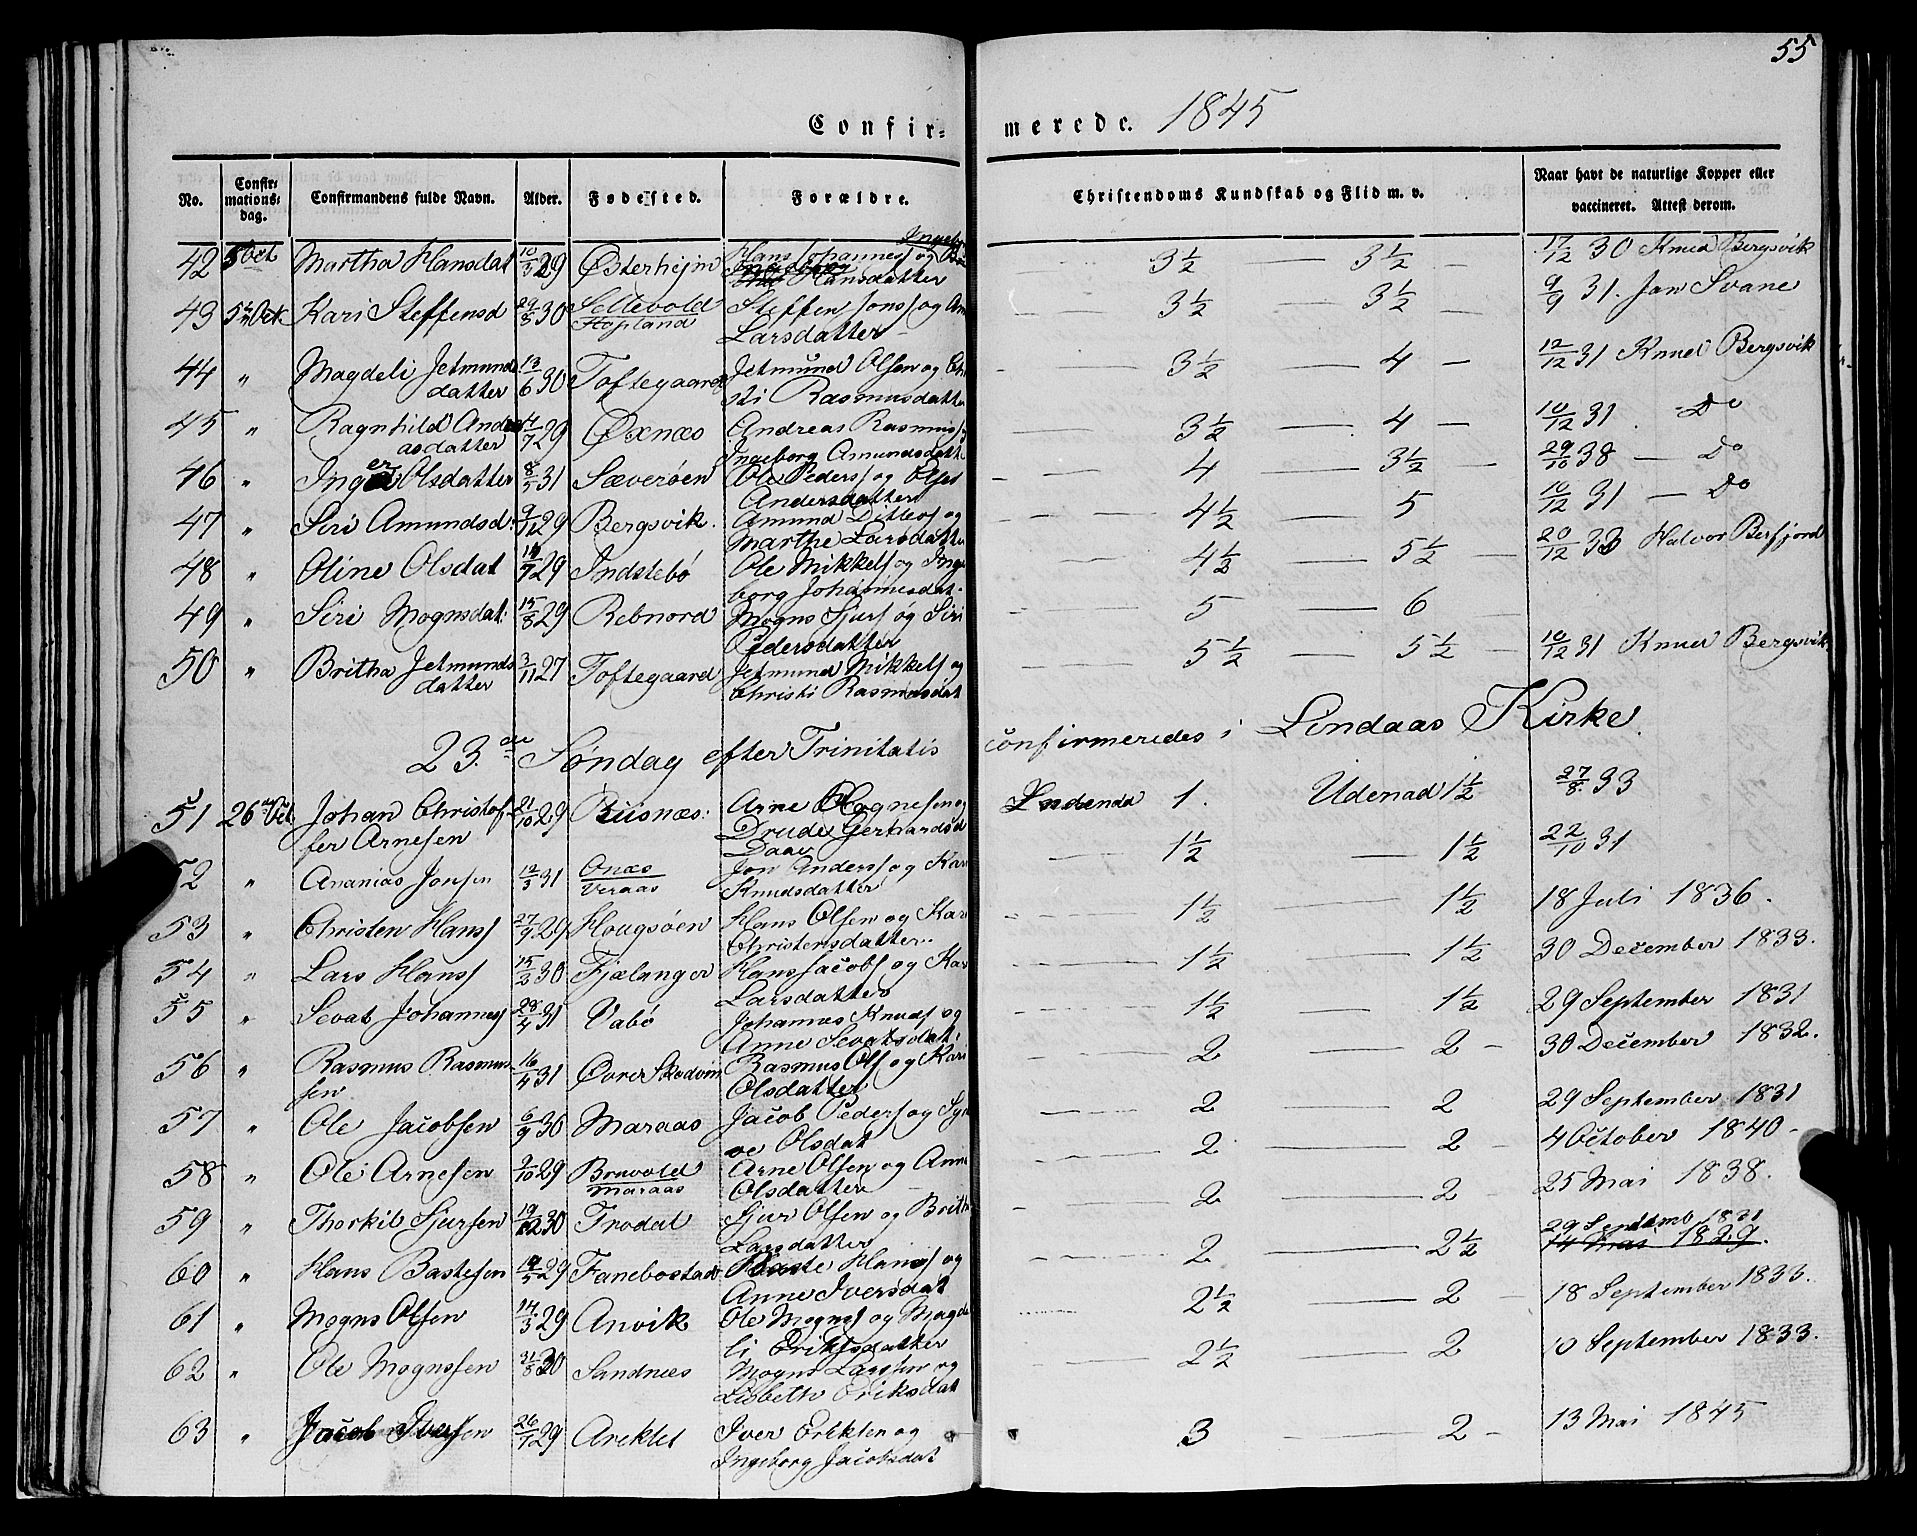 55
Confir- merede. 1845
No. Confir- mations- dag. Confirmandens fulde Navn. Alder. Fødested. Forældre. Christendoms Kundskab og Flid m. v. Naar havt de naturlige Kopper eller vaccineret. Attest derom.
42 5 Oct Martha Hansdat 10/3 29 Østerhejm Hans Johanness og Hansdatter 3½ — 3½ — 17/12 30 Knud Bergsvik
43 5 Oct. Kari Steffensd 29/8 30 Seltevold Hopland Steffen Jonss og Larsdatter 3½ — 3½ — 9/9 31. Jan Svane
44 " Magdeli Jetmunds datter 13/6 30 Toftegaard Jetmund Olsen og Chri sti Rasmusdatter 3½ — 4 — 12/12 31 Knud Bergsvik
45 " Ragnhild Andre asdatter 29 Øxnæs Andreas Rasmuss Ingeborg Amundsdatt 3½ — 4 — 10/12 31. Do
46 " Inger Olsdatter 8/5 31 Sæverøen Ole Peders og Andersdatter 4 — 3½ — 29/10 38 — Do
47 " Siri Amundsd: 9/11 29 Bergsvik. Amund Ditlevs og Marthe Larsdatte 4½ — 5 10/12 31 — Do
48 " Oline Olsdat 29 Indstebö Ole Mikkels og Inge borg Johannesdat. 4½ — 5½ — 20/12 33 Halvor Risfjord
49 " Siri Mognsdat: 15/8 29 Rebnord Mogns Sjurs og Siri Pedersdatter 5 — 6
50 " Britha Jetmunds datter 3/11 27 Toftegaard Jetmund Mikkels og Christi Rasmusdat 5½ — 5½ — 10/12 31 Knud Bergsvik.
23de Søndag efter Trinitatis confirmeredes i Lindaas Kirke.
51 26de Oct. Johan Christof fer Arnesen 21/10 29 Risnæs. Arne Mognesen og Drude Gerhardsd Daae Indenad 1. Udenad 1½ 27/8 33
52 " Ananias Jonsen 12/3 31 Onæs Veraas Jon Anderss og Kari Knudsdatter 1½ — 1½ 22/10 31
53 " Christen Hanss 27/9 29 Hougsøen Hans Olsen og Kari Christensdatter. 1½ — 1½ 18 Juli 1836.
54 " Lars Hanss 15/2 30 Fjælanger Hans Jacobs og Kari Larsdatter 1½ — 1½ 30 December 1833.
55 " Sevat Johanness 28/4 31 Vabö Johannes Knuds og Anne Sevatsdat. 1½ — 1½ 29 September 1831
56 " Rasmus Rasmus sen 16/4 31 Øvre Skodvin Rasmus Ols og Kari Olsdatter 2 — 2 — 30 December 1832.
57 " Ole Jacobsen 6/9 30 Maraas Jacob Peders og Syn ve Olsdat 2 — 2 29 September 1831
58 " Ole Arnesen 9/10 29 Bruvold Maraas Arne Olsen og Anne Olsdatter 2 — 2 — 4 October 1840-
59 " Thorkil Sjursen 19/12 30 Frodal Sjur Olsen og Brith Larsdatter 2 — 2 — 25 Mai 1838.
60 " Hans Bastesen 29 Fanebostad Baste Hanss og Anne Iversdat 2 — 2½ 29 Septemb 1831 14 Mai 1829.
61 " Mogns Olsen 14/3 29 Anvik Ole Mognss og Magde li Eriksdatter 2½ — 2 — 18 September 1833.
62 " Ole Mognssen 31/8 30 Sandnæs Mogns Larssen og Lisbeth Eriksdat 2½ — 2 10 September 1833.
63 " Jacob Iversen 26/7 29 Areklet Iver Eriksen og Ingeborg Jacobsdat 3 — 2 — 13 Mai 1845